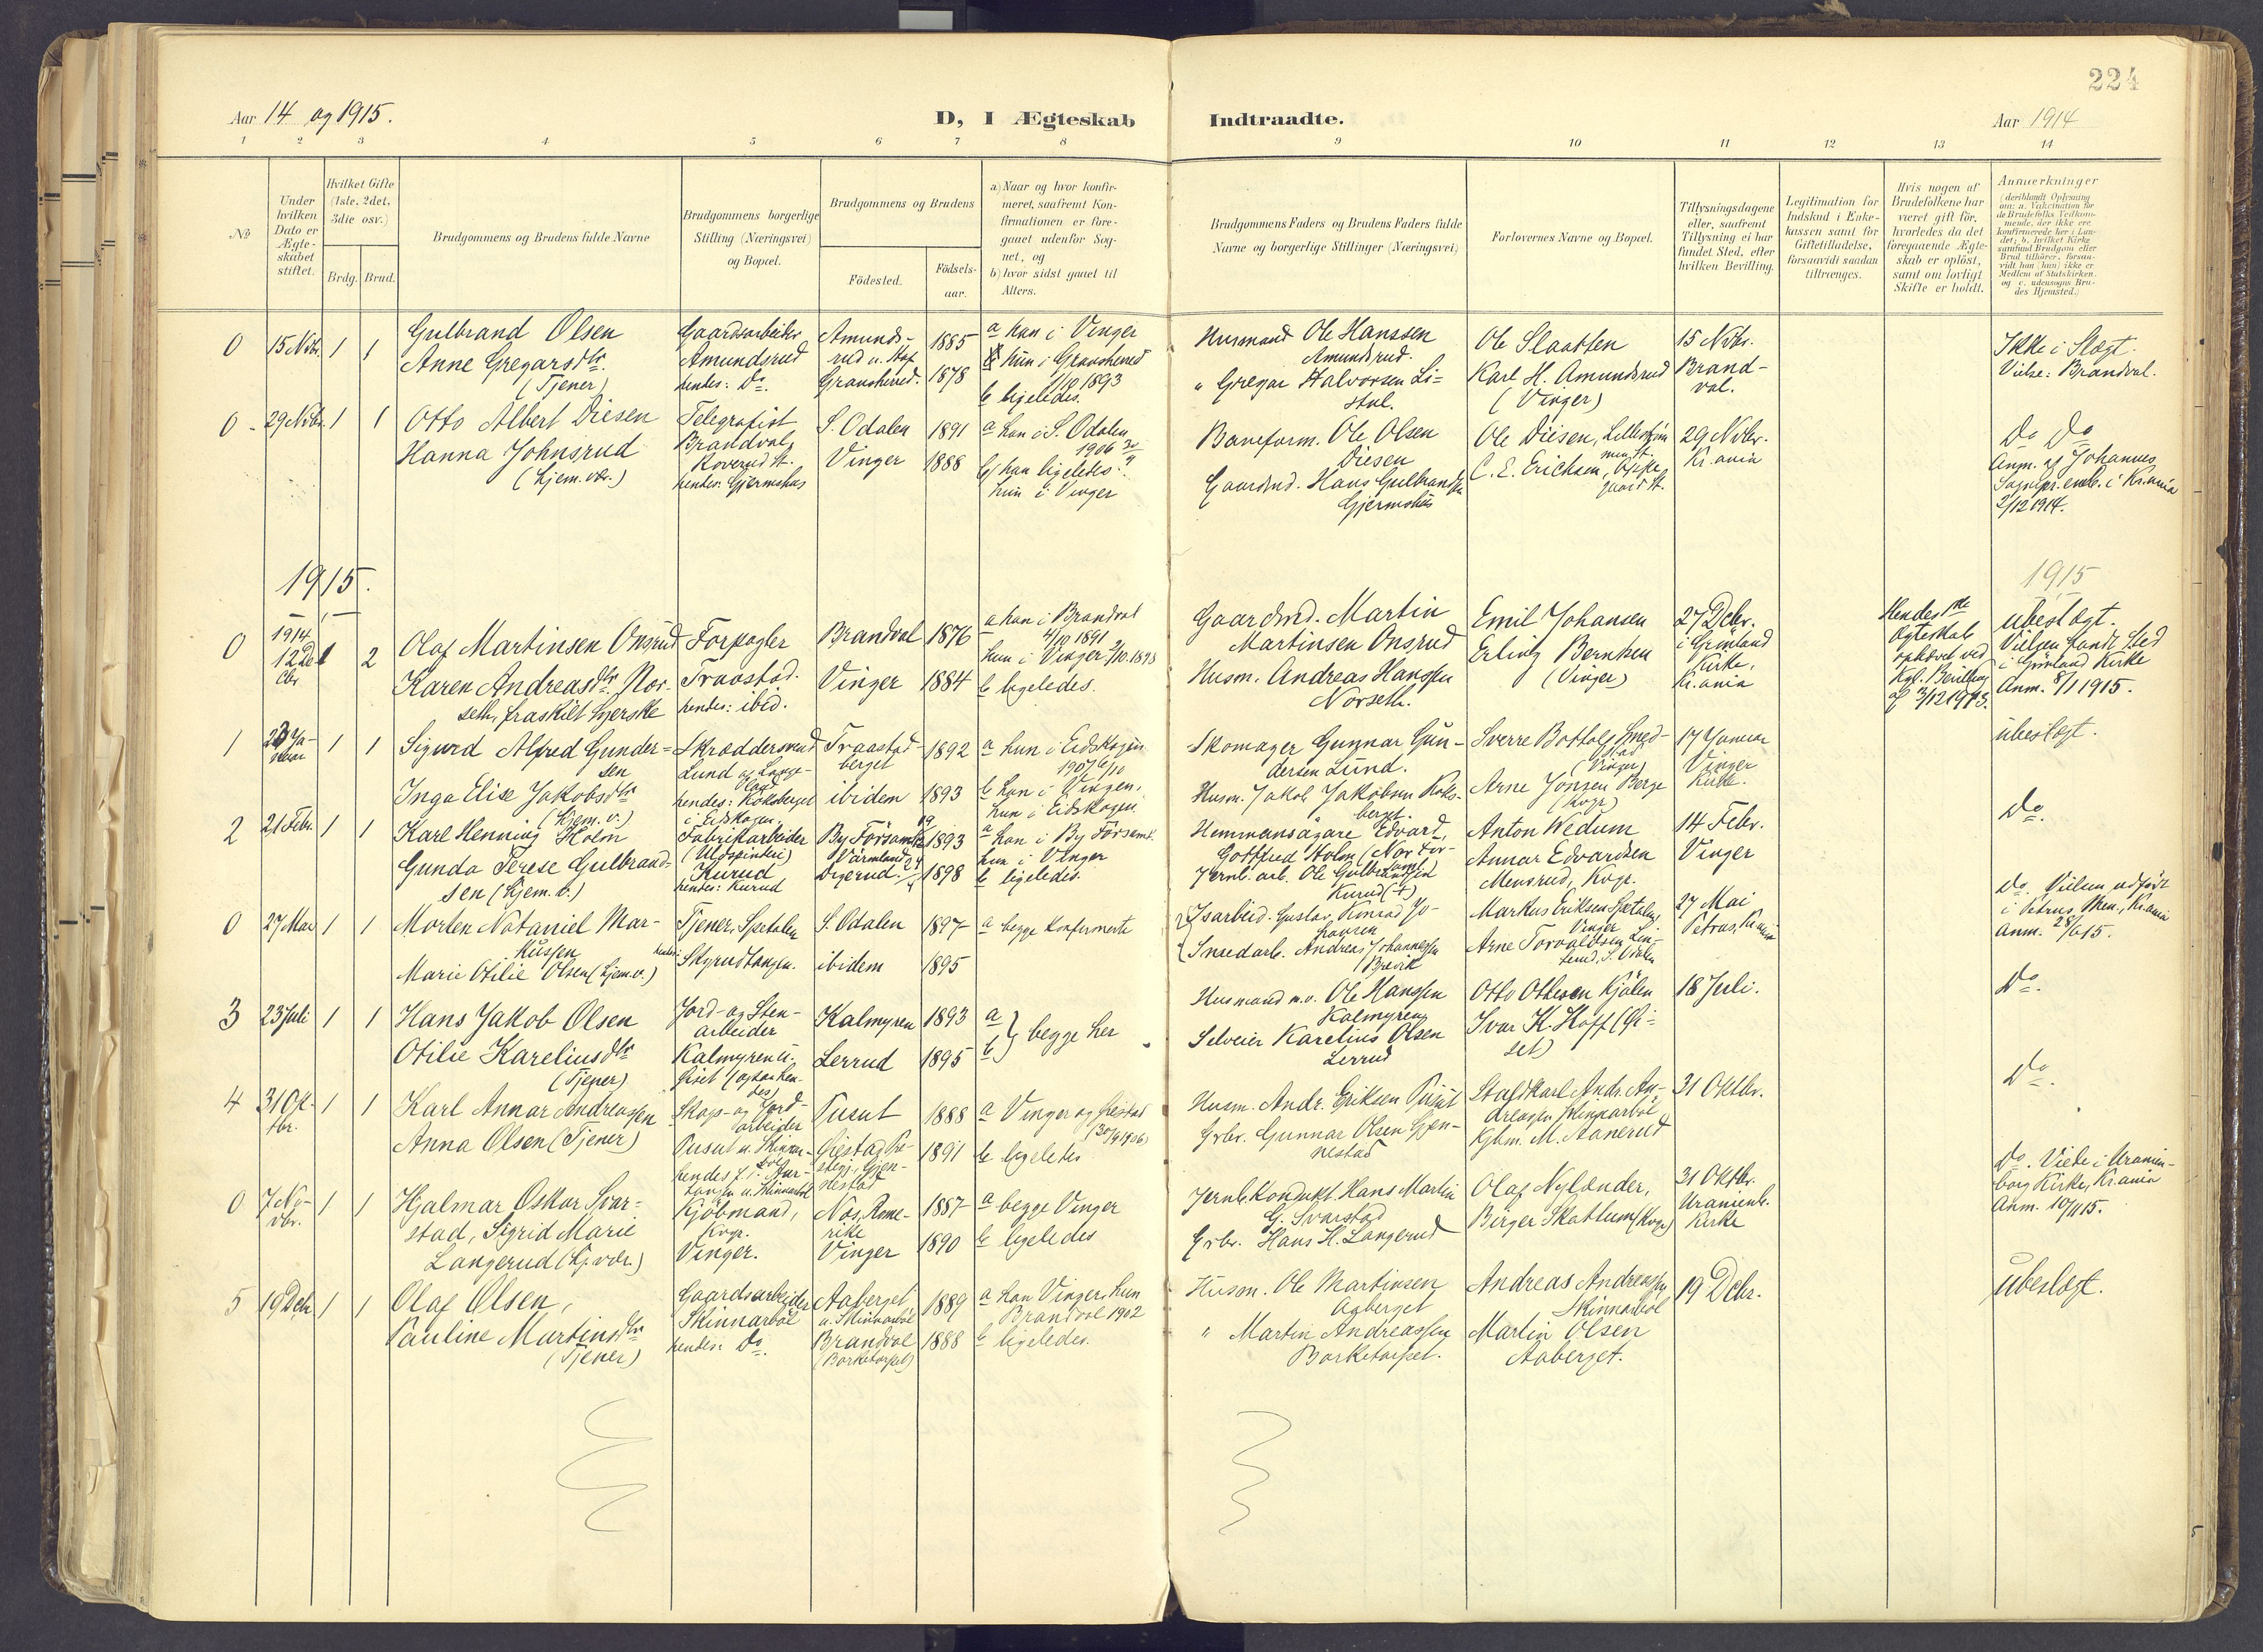 224
Aar 14 og 1915.
D, I Ægteskab Indtraadte.
Aar 1914
1 2 3 4 5 6 7 8 9 10 11 12 13 14
No
Under
hvilken
Dato er
Ægte-
skabet
stiftet.
Hvilket Gifte
(1ste, 2det,
3die osv.)
Brdg. Brud.
Brudgommens og Brudens fulde Navne
Brudgommens borgerlige
Stilling (Næringsvei)
og Bopæl.
Brudgommens og Brudens
Födested.
Födsels-
aar.
a) Naar og hvor konfir-
meret, saafremt Kon-
firmationen er fore-
gaaet udenfor Sog-
net, og
b) hvor sidst gaaet til
Alters.
Brudgommens Faders og Brudens Faders fulde
Navne og borgerlige Stillinger (Næringsvei)
Forlovernes Navne og Bopæl.
Tillysningsdagene
eller, saafremt
Tillysning ei har
fundet Sted, efter
hvilken Bevilling.
Legitimation for
Indskud i Enke-
kassen samt for
Giftetilladelse,
forsaavidt saadan
tiltrænges.
Hvis nogen af
Brudefolkene har
været gift før,
hvorledes da det
foregaaende Ægte-
skab er oplöst,
samt om lovligt
Skifte er holdt.
Anmerkninger
(deriblandt Oplysning
om: a. Vakcination for
de Brudefolks Vedkom-
mende, der ikke ere
konfirmerede her i Lan-
det; b. hvilket Kirke-
samfund Brudgom eller
Brud tilhörer, forsaa-
vidt han (hun) ikke er
Medlem af Statskirken,
og c. udensogns Bru-
des Hjemsted.)
0 15 Novbr. 1 1
Gulbrand Olsen
Anne Gregarsdtr.
(Tjener)
Gaardsarbeider
Amundsrud
hendes: Do.
Amunds-
rud u. Hof
Gransherred.
1885
1878
a han i Vinger
hun i Gransherred
1/10 1893
b ligeledes.
Husmand Ole Hanssen
Amundsrud.
" Gregar Halvorsen Li-
stul.
Ole Slaatten
Karl H. Amundsrud
(Vinger)
15 Novbr.
Brand-
val.
Ikke i Slægt.
Vielse: Brandval.
0 29 Novbr. 1 1
Otto Albert Diesen
Hanna Johnsrud
(hjem. vær.)
Telegrafist
Brandval,
Roverud St.
hendes: Gjermshus
S. Odalen
Vinger
1891
1888
a han i S. Odalen
1906
b han ligeledes?
hun i Vinger
Baneform. Ole Olsen
Diesen
Gaardmd. Hans Gulbrandsen
Gjermshus
Ole Diesen, Lillestrøm
C. E. Erichsen,
29 Novbr.
Kr.ania
Do Do
Anm. af Johannes
Sognepr. emb. i Kr.ania
2/12 1914.
1915.
1915
0 1914
12 De
cbr 1 2
Olaf Martinsen Onsrud
Karen Andreasdtr. Nor-
seth, fraskilt Bjerske
Forpagter
Traastad.
hendes: ibid.
Brandval
Vinger
1876
1884
a han i Brandval
4/10 1891
hun i Vinger 2/10 1898
b ligeledes.
Gaardmd. Martin
Martinsen Onsrud
Husm. Andreas Hanssen
Norseth.
Emil Johansen
Erling Berntsen
(Vinger)
27 Debr.
i Grönland
Kirke,
Kr.ania
Hendes 1ste
Ægteskab
ophævet ved
Kgl. Bevilling
af 3/12 1913.
Ubeslægt.
Vielsen fandt Sted
i Grönland Kirke
Anm. 8/1 1915.
1 Ja-
nuar 1 1
Sigurd Alfred Gunder-
sen
Inga Elise Jakobsdtr
(hjem. v.)
Skræddersvend
Lund
hendes: Koksberget
i Eidskogen.
Traastad-
berget
ibidem
1892
1893
a hun i Eidskogen
1907 6/10
b han i Vinger,
hun i Eidskogen
Skomager Gunnar Gun-
dersen Lund.
Husm. Jakob Jakobsen Koks-
berget.
Sverre Bottolf Smed-
stad
(Vinger)
Arne Jonsen Berge
(Kvgr.)
17 Januar
Vinger
Kirke.
Ubeslægt.
2 21 Febr. 1 1
Karl Henning Holm
Gunda Terese Gulbrand-
sen (hjem. v.)
Fabrikarbeider
(Uldspinderi)
Kurud
hendes: Kurud
By Församl.
Värmland
1893
1898
a han i By Församl.
hun i Vinger
b ligeledes.
Hemmansägare Edvard
Gottfred Holm
Jernb. arb. Ole Gulbrandsen
Kurud (+)
Anton Wedum
Annar Edvardsen
Mensrud, Kvgr.
14 Febr.
Vinger
Do.
0 27 Mai 1 1
Morten Nataniel Mar-
kussen
Marie Otilie Olsen (hjem. v.)
Tjener, Spetalen
hendes: Skyrudtangen.
S. Odalen
ibidem
1897
1895
a begge konfirmerte
Isarbeid. Gustav Konrad Jo-
hansen
Smedarb. Andreas Johannessen
Brevik
Markus Eriksen Spetalen
Vinger
Arne Torvaldsen Lin-
terud, S. Odalen
27 Mai
Petrus, Kr.ania
Do. Vielsen udført
i Petrus Men., Kr.ania
Anm. 28/6 15.
3 23 Juli 1 1
Hans Jakob Olsen
Otilie Kareliusdtr
(Tjener)
Jord- og Sten-
arbeider
Kalmyren u.
Giset (ogsaa hen-
des)
Kalmyren
Lerrud
1893
1895
a
b } begge her
Husmand m. v. Ole Hanssen
Kalmyren
Selveier Karelius Olsen
Lerrud
Otto Ottesen Kjølen
Ivar K. Hoff (Gi-
set)
18 Juli.
Do.
4 31 Ok-
tbr. 1 1
Karl Annar Andreassen
Anna Olsen (Tjener)
Skogs- og Jord-
arbeider
Pusut u. Skinnar-
böl
Pusut
1888
1891
a Vinger og Grestad
(30/9 1906)
b ligeledes
Husm. Andr. Eriksen Pusut
Grbr. Gunnar Olsen Gjen-
nestad
Staldkarl Andr. An-
dreasen Skinnarböl
Kjbm. M. Aanerud
31 Oktbr.
Do.
0 7 No-
vbr. 1 1
Hjalmar Oskar Svar-
stad, Sigrid Marie
Langerud (hj. vær.)
Kjöbmand,
Kvgr.
Vinger.
Nes, Rome-
rike
Vinger
1887
1890
a begge Vinger
b ligeledes
Jernb. Kondukt. Hans Martin
G. Svarstad
Grbr. Hans H. Langerud
Olaf Nylænder,
Birger Skattum (Kvgr)
31 Oktbr.
Uranienb.
Kirke
Do. Vielse i Uranien-
borg Kirke, Kr.ania
Anm. 10/11 15.
5 19 Debr 1 1
Olaf Olsen,
Pauline Martinsdtr
(Tjener)
Gaardsarbeider
Skinnarböl
hendes: Do.
Aaberget
u. Skinnarböl
Brandval
(Barketorpet)
1889
1888
a han Vinger, hun
Brandval 1902
b ligeledes.
Husm. Ole Martinsen
Aaberget
" Martin Andreassen
Barketorpet.
Andreas Andreassen
Skinnarböl
Martin Olsen
Aaberget.
19 Debr.
Ubeslægt.